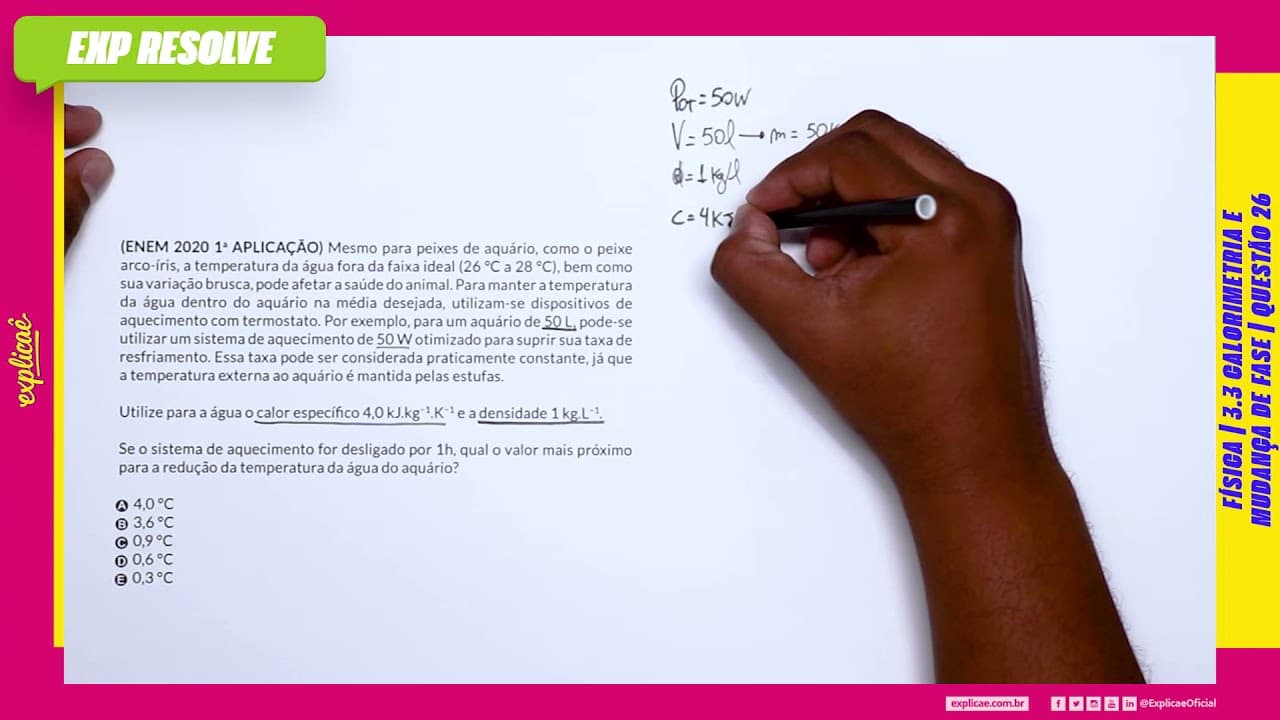 EXP RESOLVE
Pot = 50W
V = 50l → m = 50
d = 1 kg/l
c = 4 KJ
(ENEM 2020 1ª APLICAÇÃO) Mesmo para peixes de aquário, como o peixe
arco-íris, a temperatura da água fora da faixa ideal (26 °C a 28 °C), bem como
sua variação brusca, pode afetar a saúde do animal. Para manter a temperatura
da água dentro do aquário na média desejada, utilizam-se dispositivos de
aquecimento com termostato. Por exemplo, para um aquário de 50 L, pode-se
utilizar um sistema de aquecimento de 50 W otimizado para suprir sua taxa de
resfriamento. Essa taxa pode ser considerada praticamente constante, já que
a temperatura externa ao aquário é mantida pelas estufas.
Utilize para a água o calor específico 4,0 kJ.kg⁻¹.K⁻¹ e a densidade 1 kg.L⁻¹.
Se o sistema de aquecimento for desligado por 1h, qual o valor mais próximo
para a redução da temperatura da água do aquário?
A 4,0 °C
B 3,6 °C
C 0,9 °C
D 0,6 °C
E 0,3 °C
explicaê
FÍSICA | 3.3 CALORIMETRIA E
MUDANÇA DE FASE | QUESTÃO 26
explicae.com.br
@ExplicaeOficial